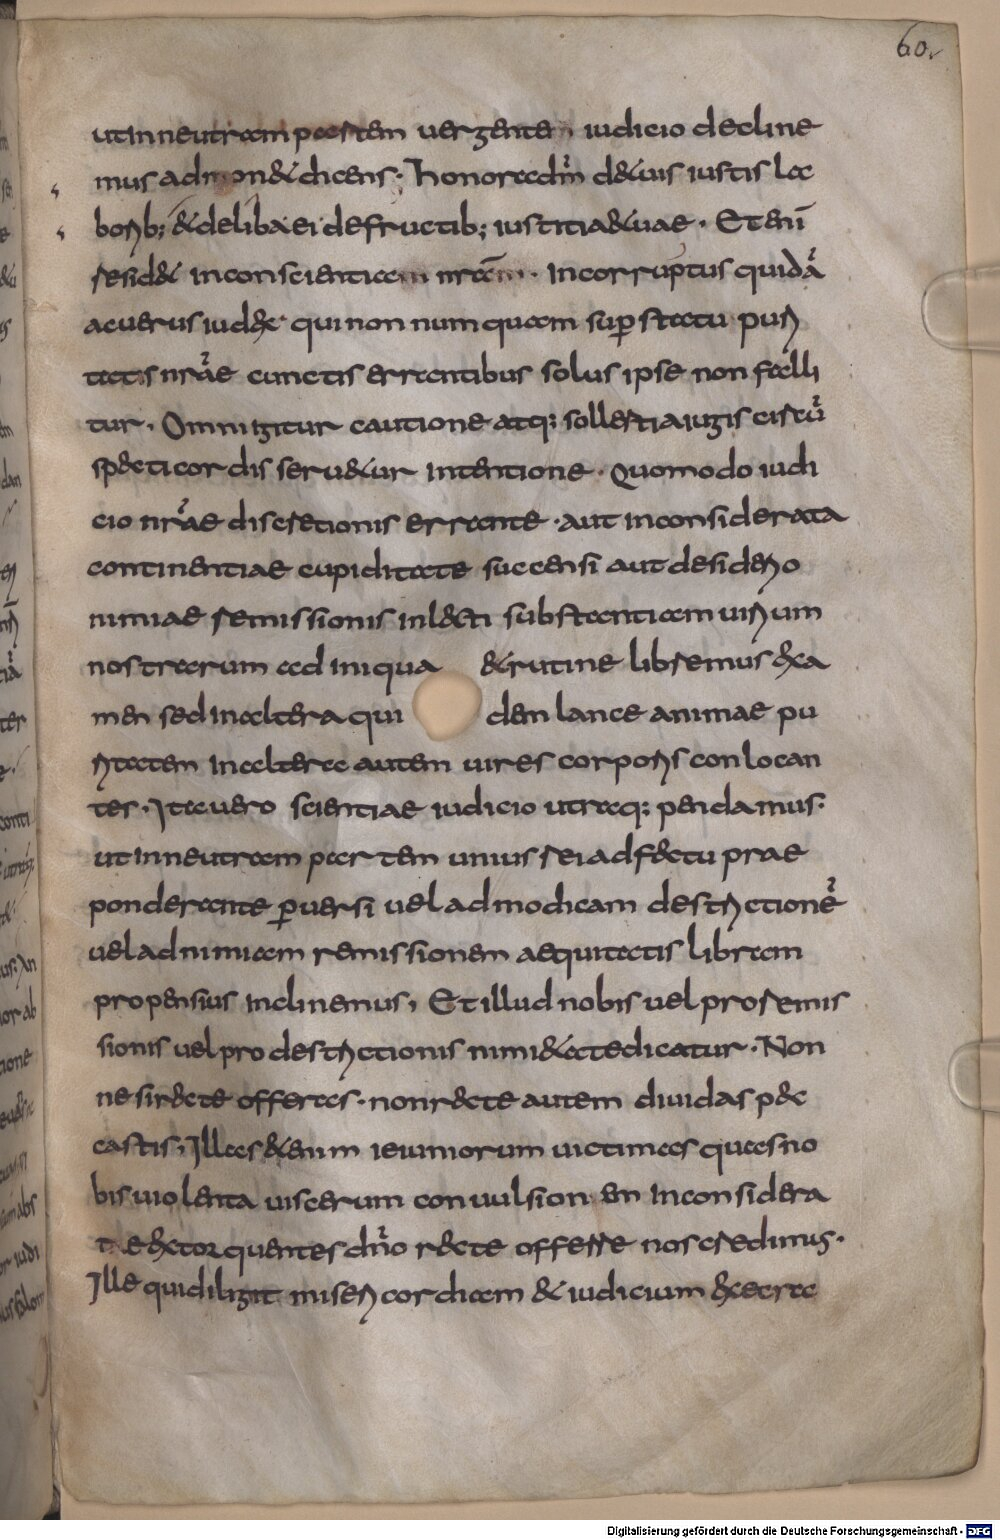 60.
ut in neutram partem uergente iudicio decline
mus admon& dicens · honora dn̄m d& uis iustis la
borib; & deliba ei de fructib; iustitia& uae · Et enī
resid& in conscientiam nr̄am · incorruptus quidā
ac uerus iudex · qui non numquam sup statu puri
tatis nr̄ae cunctis errantibus solus ipse non falli
tur · Omni igitur cautione atq; sollertia iugis circū
specti cordis seru&ur intentione · Quomodo iudi
cio nr̄ae discretionis errante · aut inconsiderata
continentiae cupiditate succensi aut desiderio
nimiae remissionis inlecti substantiam uirium
nostrarum ad iniqua &rutine libremus exa
men sed in altera qui dem lance animae pu
ritatem in altera autem uires corporis conlocan
tes · Ita uero scientiae iudicio utraq; pendamus ·
ut in neutram partem unius rei adfectu prae
ponderante puersi uel ad modicam destrictionē
uel ad nimiam remissionem aequitatis libram
propensius inclinemus · Et illud nobis uel pro remis
sionis uel pro destrictionis nimi&ate dicatur · Non
ne si recte offeras · non recte autem diuidas pec
casti · Illas &enim ieiuniorum uictimas quas no
bis uiolenta uiscerum conuulsionem inconsidera
te extorquentes dn̄o recte offerre nos credimus ·
Ille qui diligit misericordiam & iudicium execra
Digitalisierung gefördert durch die Deutsche Forschungsgemeinschaft - DFG